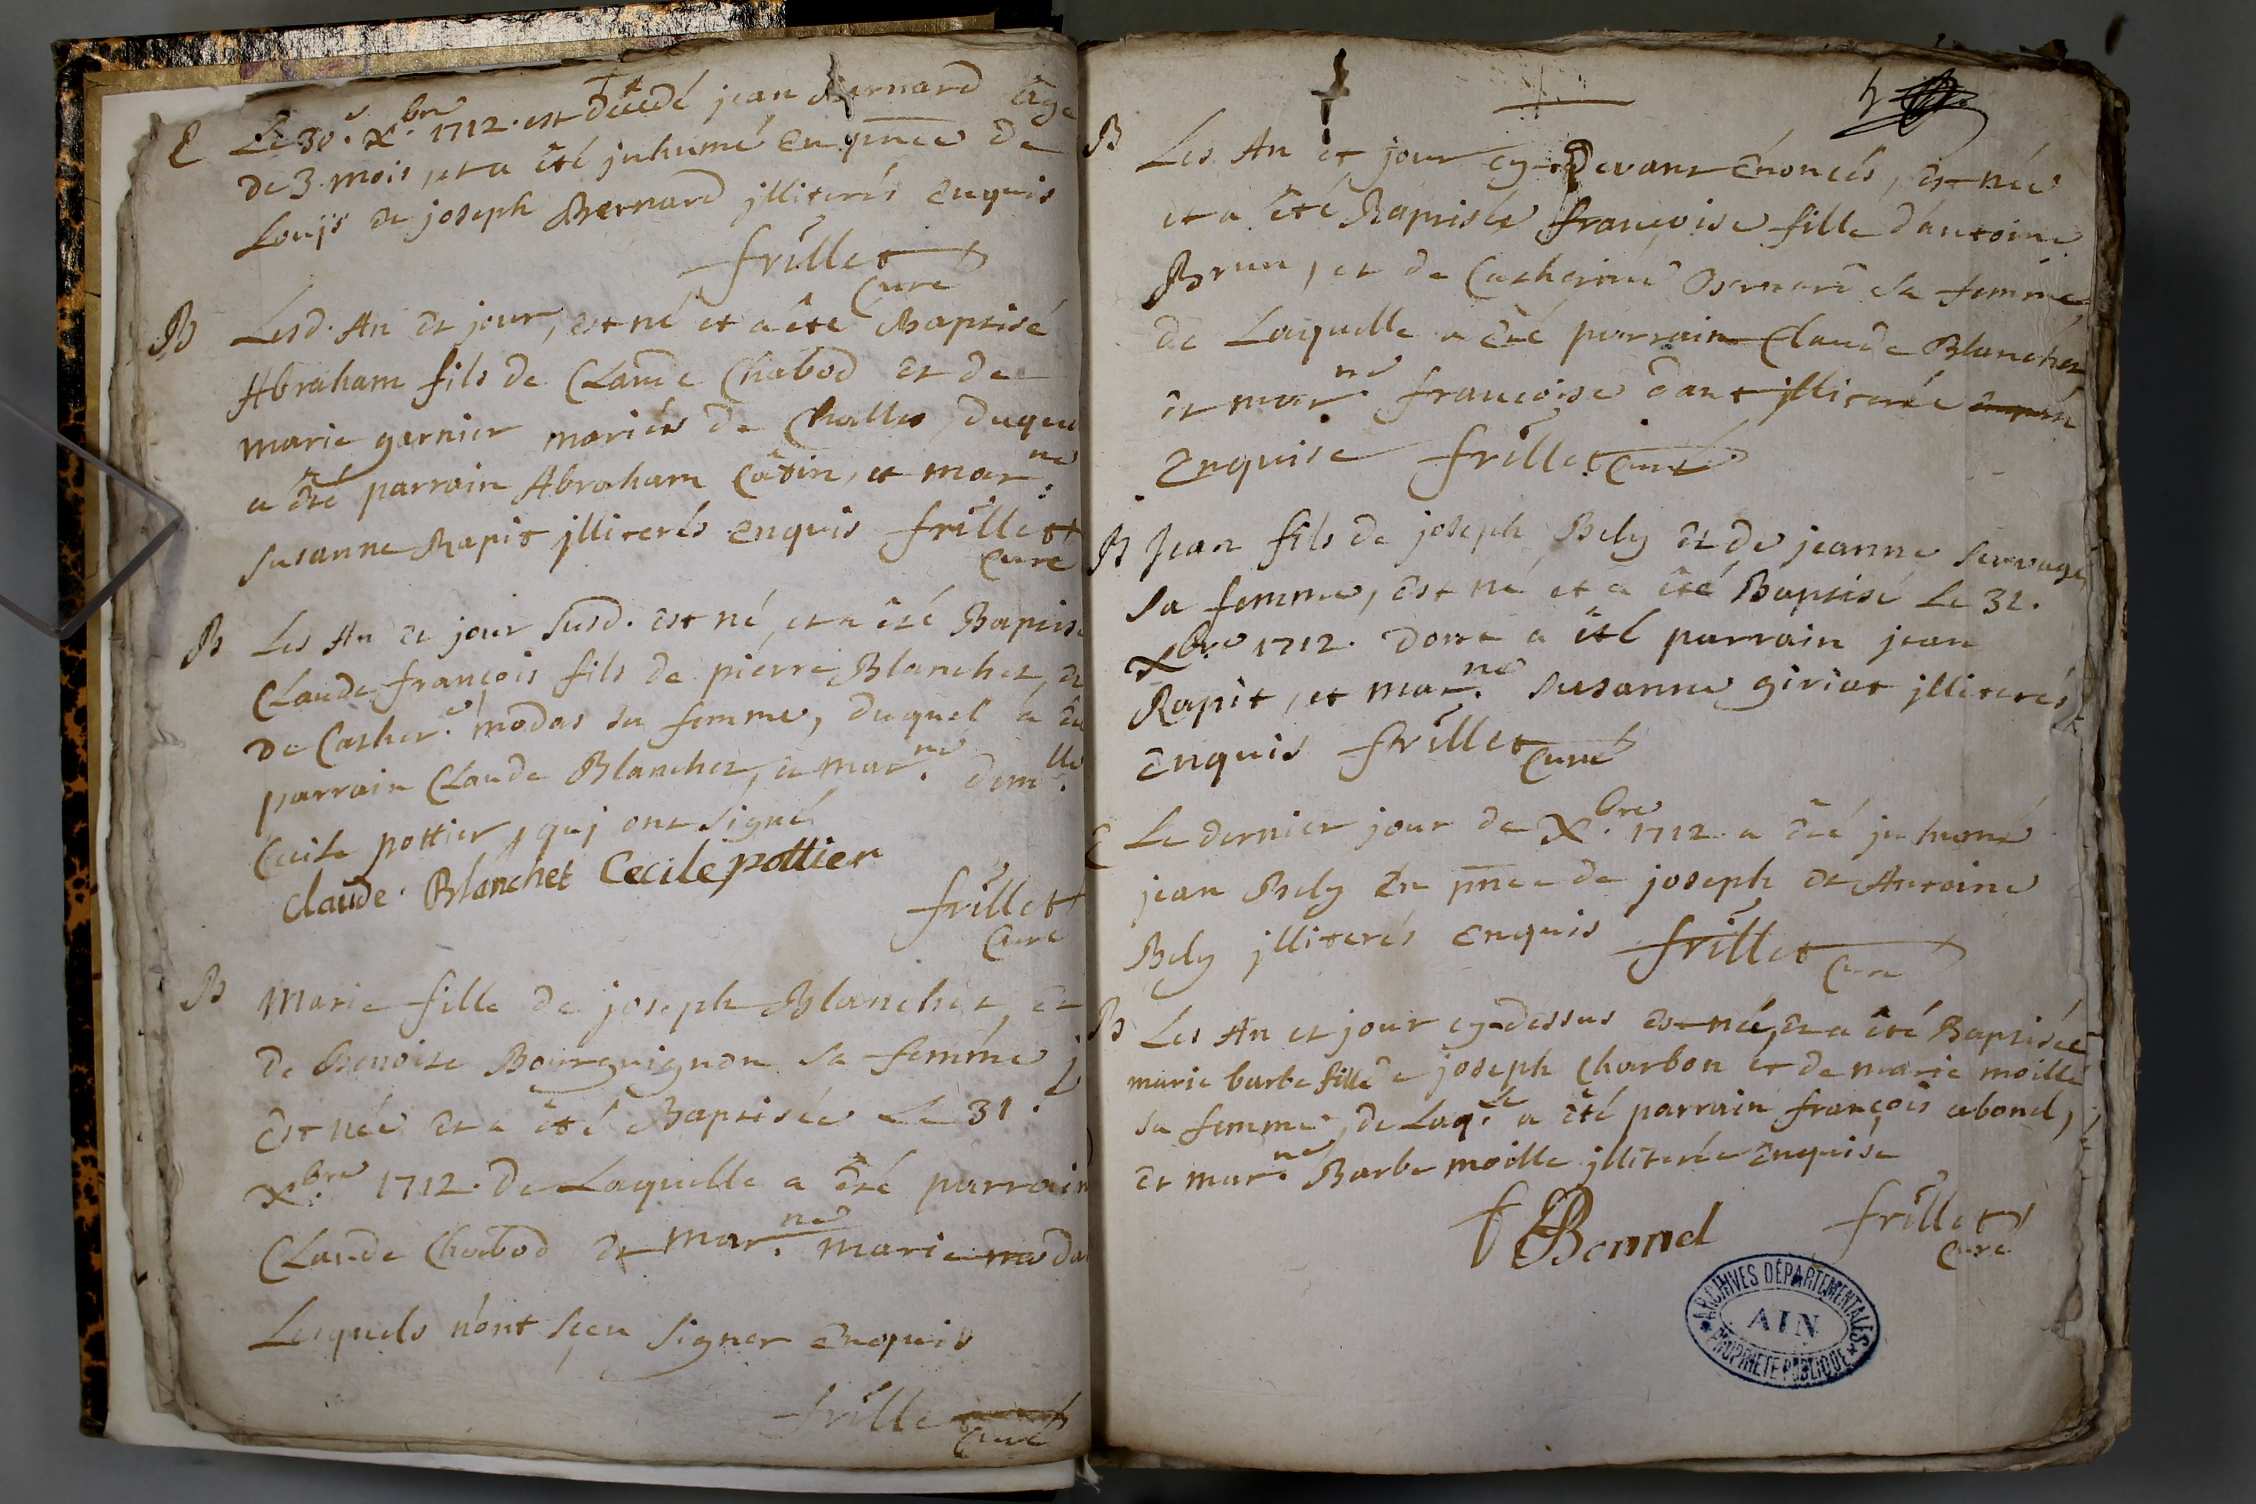 E Le 30.e Xbre 1712. est décédé jean Bernard âgé
de 3. mois, et a êté jnhumé en pnce de
Louys et joseph Bernard jlliterés enquis
frillet
Curé
B Lesd. An et jour, est né et a êté Baptisé
Abraham fils de CLaude Chabod et de
marie garnier mariés de Challes, duquel
a êté parrain Abraham Câtin, et mar.ne
susanne Rapit jlliterés enquis frillet
Curé
B Les An et jour susd. est né, et a êté Baptisé
CLaude françois fils de piérre Blanchet, et
de Cather.e modas sa femme, duquel a êté
parrain CLaude Blanchet, et mar.ne dem.lle
Cecile pottier, quj ont signé
Claude Blanchet Cecile pottier
frillet
Curé
B Marie fille de joseph Blanchet, et
de Benoite Bourguignon sa femme
est née et a êté Baptisée Le 31.
Xbre 1712. de Laquelle a êté parrain
CLaude Chabod et mar.ne marie moda
Lesquels n'ont sçeu signer enquis
frillet
Curé
B Les An et jour cy-devant énoncés, est née
et a êté Baptisée françoise fille d'antoine
Brun, et de Catherine Bernard sa femme
de Laquelle a êté parrain Claude Blanchet
et mar.ne françoise dant jlliterée
enquise frillet Curé
B Jean fils de joseph Bely et de jeanne servage
sa femme, est né et a êté Baptisé Le 31.
Xbre 1712. dont a êté parrain jean
Rapit, et mar.ne susanne giriat jlliterés
enquis frillet Curé
E Le dernier jour de Xbre 1712. a êté jnhumé
jean Bely en pnce de joseph et Antoine
Bely jlliterés enquis frillet
Curé
B Les An et jour cy-dessus est née, et a êté Baptisée
marie barbe fille de joseph Charbon et de marie moille
sa femme, de Laq.le a êté parrain françois abonel,
et mar.ne Barbe moille jlliterée enquise
f Bonnel frillet
Curé
ARCHIVES DÉPARTEMENTALES
AIN
PROPRIÉTÉ PUBLIQUE